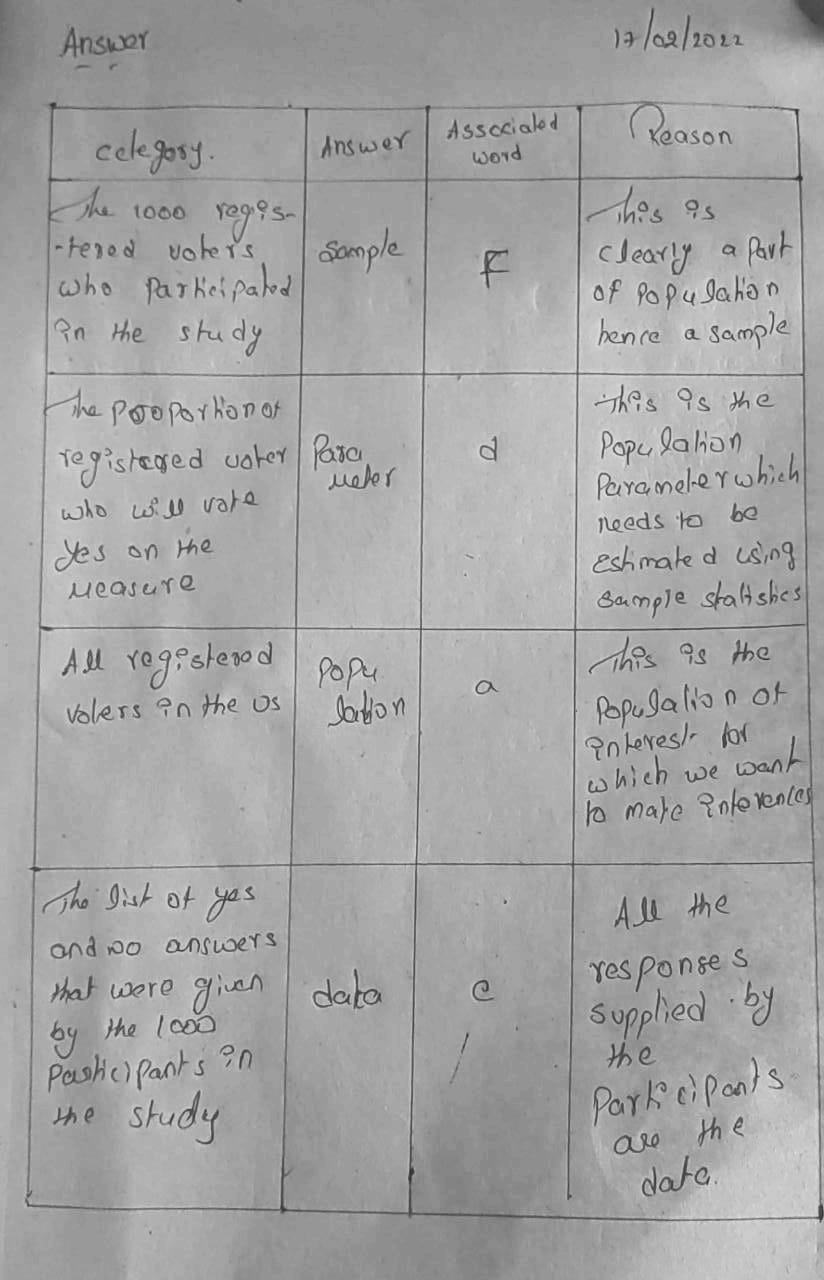 Answer
17/02/2022
Celegory.
Answer
Associated
word
Reason
The 1000 regis-
-tered voters
who participated
in the study
Sample
F
This is
clearly a part
of population
hence a sample
The proportion of
registered voter
who will vote
Yes on the
measure
Para
meter
d
This is the
Population
Parameter which
needs to be
estimated using
sample statistics
All registered
voters in the US
Popu
lation
a
This is the
Population of
interest for
which we want
to make inferences
The list of yes
and no answers
that were given
by the 1000
Participants in
the study
data
c
All the
responses
supplied by
the
Participants
are the
data.